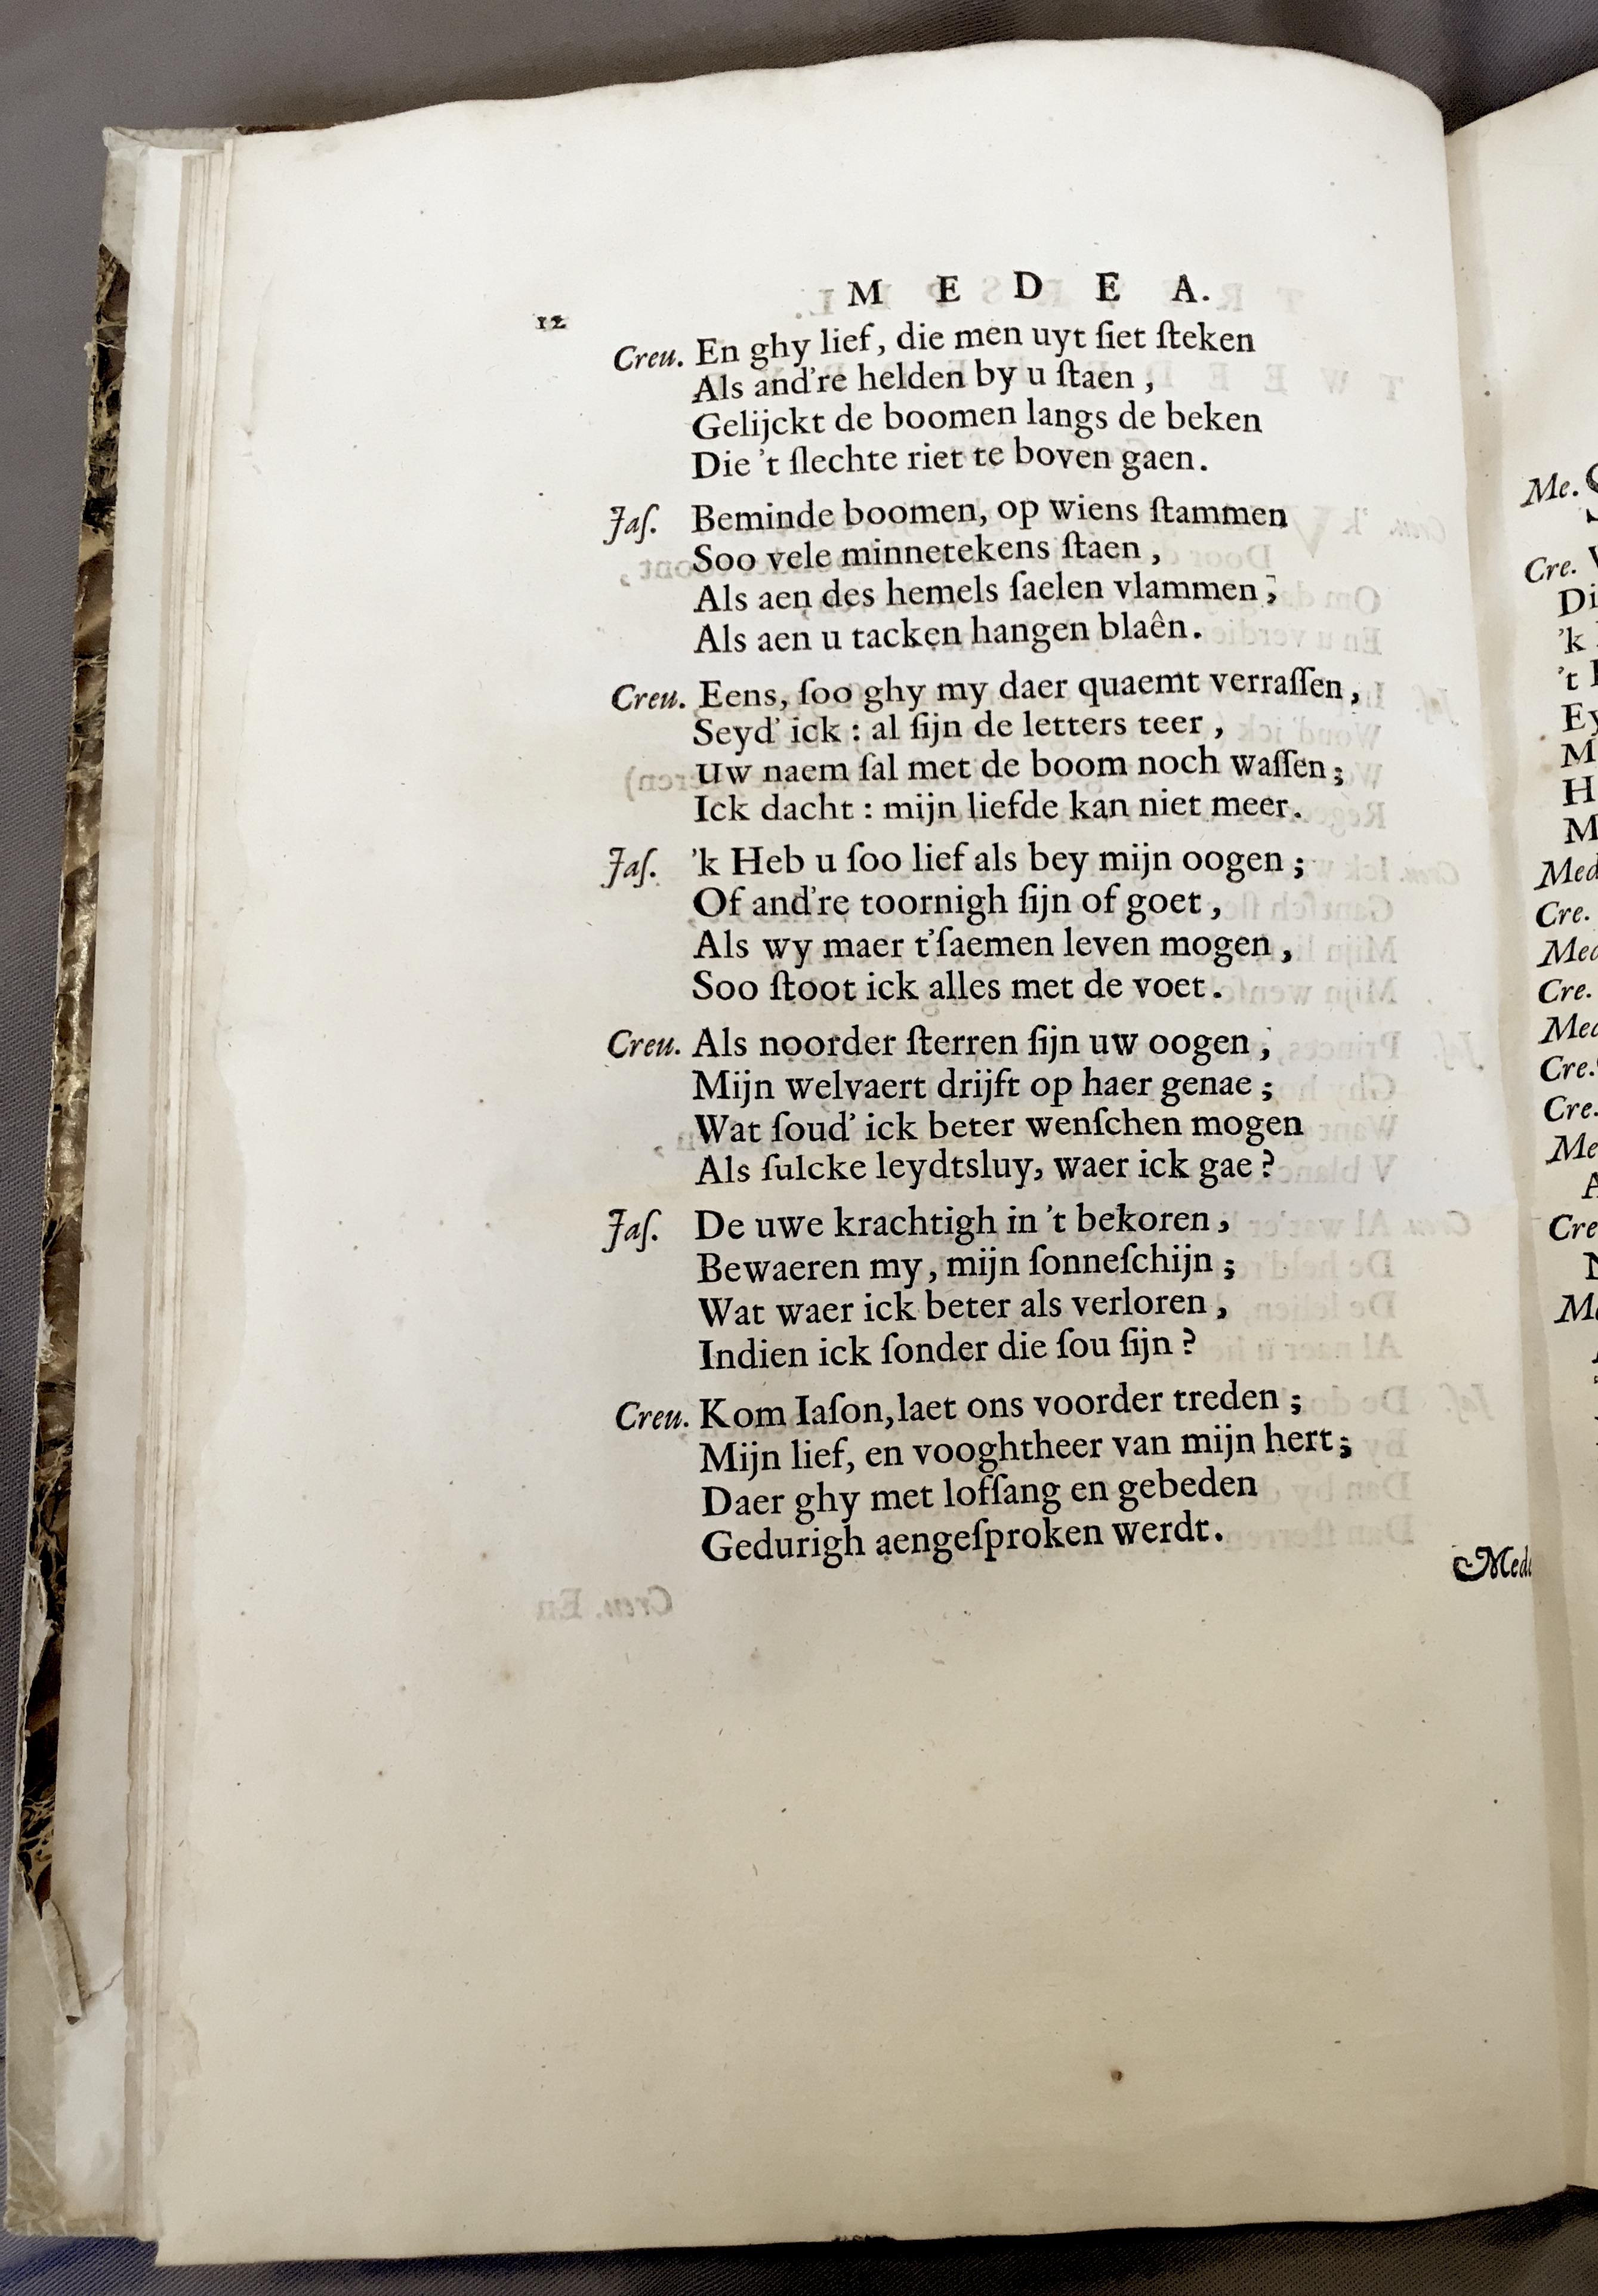 M E D E A.
12
Creu. En ghy lief, die men uyt ſiet ſteken
Als and're helden by u ſtaen,
Gelijckt de boomen langs de beken
Die 't ſlechte riet te boven gaen.
Jaſ. Beminde boomen, op wiens ſtammen
Soo vele minnetekens ſtaen,
Als aen des hemels ſaelen vlammen,
Als aen u tacken hangen blaên.
Creu. Eens, ſoo ghy my daer quaemt verraſſen,
Seyd' ick: al ſijn de letters teer,
Uw naem ſal met de boom noch waſſen;
Ick dacht: mijn liefde kan niet meer.
Jaſ. 'k Heb u ſoo lief als bey mijn oogen;
Of and're toornigh ſijn of goet,
Als wy maer t'ſaemen leven mogen,
Soo ſtoot ick alles met de voet.
Creu. Als noorder ſterren ſijn uw oogen,
Mijn welvaert drijft op haer genae;
Wat ſoud' ick beter wenſchen mogen
Als ſulcke leydtsluy, waer ick gae?
Jaſ. De uwe krachtigh in 't bekoren,
Bewaeren my, mijn ſonneſchijn;
Wat waer ick beter als verloren,
Indien ick ſonder die ſou ſijn?
Creu. Kom Iaſon, laet ons voorder treden;
Mijn lief, en vooghtheer van mijn hert;
Daer ghy met lofſang en gebeden
Gedurigh aengeſproken werdt.
Mede
Me.
Cre.
Di
'k
't
Ey
M
H
M
Med
Cre.
Med
Cre.
Med
Cre.
Cre.
Me
A
Cre
Me